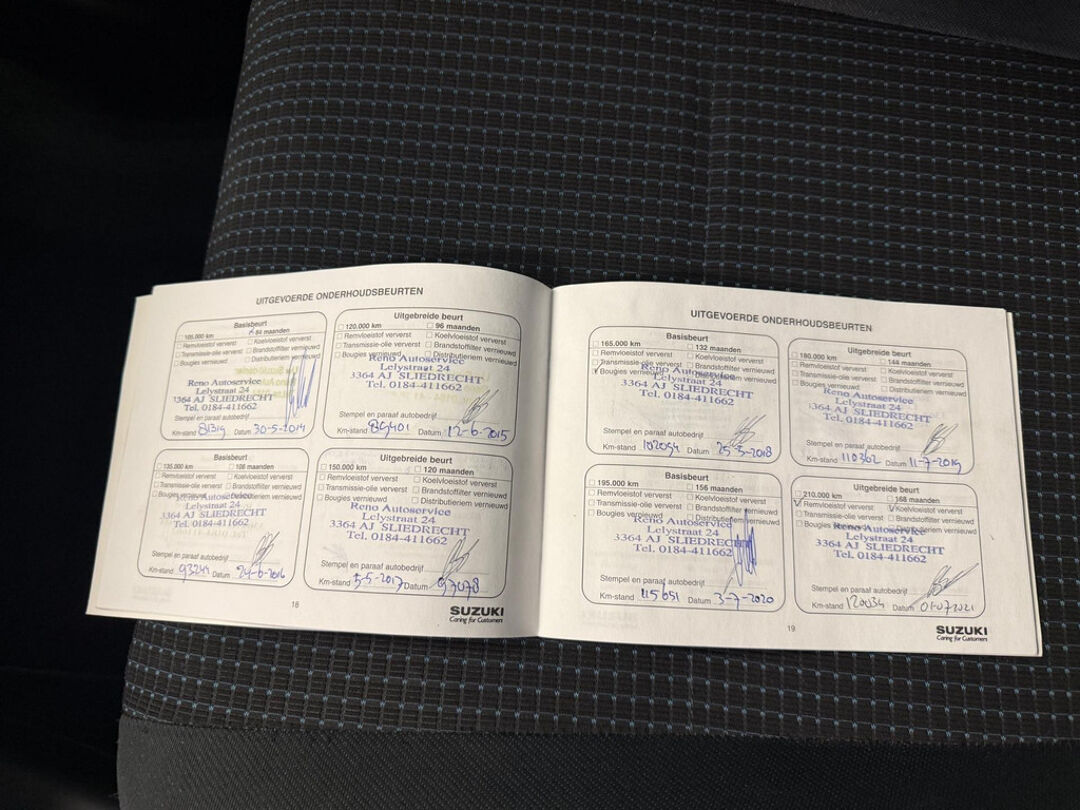 UITGEVOERDE ONDERHOUDSBEURTEN
Basisbeurt
105.000 km 84 maanden
Remvloeistof ververst Koelvloeistof ververst
Transmissie-olie ververst Brandstoffilter vernieuwd
Bougies vernieuwd Distributieriem vernieuwd
Reno Autoservice
Lelystraat 24
3364 AJ SLIEDRECHT
Tel. 0184-411662
Stempel en paraaf autobedrijf
Km-stand Datum 30-5-2014
Uitgebreide beurt
120.000 km 96 maanden
Remvloeistof ververst Koelvloeistof ververst
Transmissie-olie ververst Brandstoffilter vernieuwd
Bougies vernieuwd Distributieriem vernieuwd
Reno Autoservice
Lelystraat 24
3364 AJ SLIEDRECHT
Tel. 0184-411662
Stempel en paraaf autobedrijf
Km-stand 89401 Datum 12-6-2015
Basisbeurt
135.000 km 108 maanden
Remvloeistof ververst Koelvloeistof ververst
Transmissie-olie ververst Brandstoffilter vernieuwd
Bougies vernieuwd Distributieriem vernieuwd
Reno Autoservice
Lelystraat 24
3364 AJ SLIEDRECHT
Tel. 0184-411662
Stempel en paraaf autobedrijf
Km-stand 93244 Datum 24-6-2016
Uitgebreide beurt
150.000 km 120 maanden
Remvloeistof ververst Koelvloeistof ververst
Transmissie-olie ververst Brandstoffilter vernieuwd
Bougies vernieuwd Distributieriem vernieuwd
Reno Autoservice
Lelystraat 24
3364 AJ SLIEDRECHT
Tel. 0184-411662
Stempel en paraaf autobedrijf
Km-stand 5-5-2017 Datum 97078
18
SUZUKI
Caring for Customers
UITGEVOERDE ONDERHOUDSBEURTEN
Basisbeurt
165.000 km 132 maanden
Remvloeistof ververst Koelvloeistof ververst
Transmissie-olie ververst Brandstoffilter vernieuwd
Bougies vernieuwd Distributieriem vernieuwd
Reno Autoservice
Lelystraat 24
3364 AJ SLIEDRECHT
Tel. 0184-411662
Stempel en paraaf autobedrijf
Km-stand 102054 Datum 25-5-2018
Uitgebreide beurt
180.000 km 144 maanden
Remvloeistof ververst Koelvloeistof ververst
Transmissie-olie ververst Brandstoffilter vernieuwd
Bougies vernieuwd Distributieriem vernieuwd
Reno Autoservice
Lelystraat 24
3364 AJ SLIEDRECHT
Tel. 0184-411662
Stempel en paraaf autobedrijf
Km-stand 110362 Datum 11-7-2019
Basisbeurt
195.000 km 156 maanden
Remvloeistof ververst Koelvloeistof ververst
Transmissie-olie ververst Brandstoffilter vernieuwd
Bougies vernieuwd Distributieriem vernieuwd
Reno Autoservice
Lelystraat 24
3364 AJ SLIEDRECHT
Tel. 0184-411662
Stempel en paraaf autobedrijf
Km-stand 115651 Datum 3-7-2020
Uitgebreide beurt
210.000 km 168 maanden
Remvloeistof ververst Koelvloeistof ververst
Transmissie-olie ververst Brandstoffilter vernieuwd
Bougies vernieuwd Distributieriem vernieuwd
Reno Autoservice
Lelystraat 24
3364 AJ SLIEDRECHT
Tel. 0184-411662
Stempel en paraaf autobedrijf
Km-stand 120034 Datum 01-07-2021
19
SUZUKI
Caring for Customers